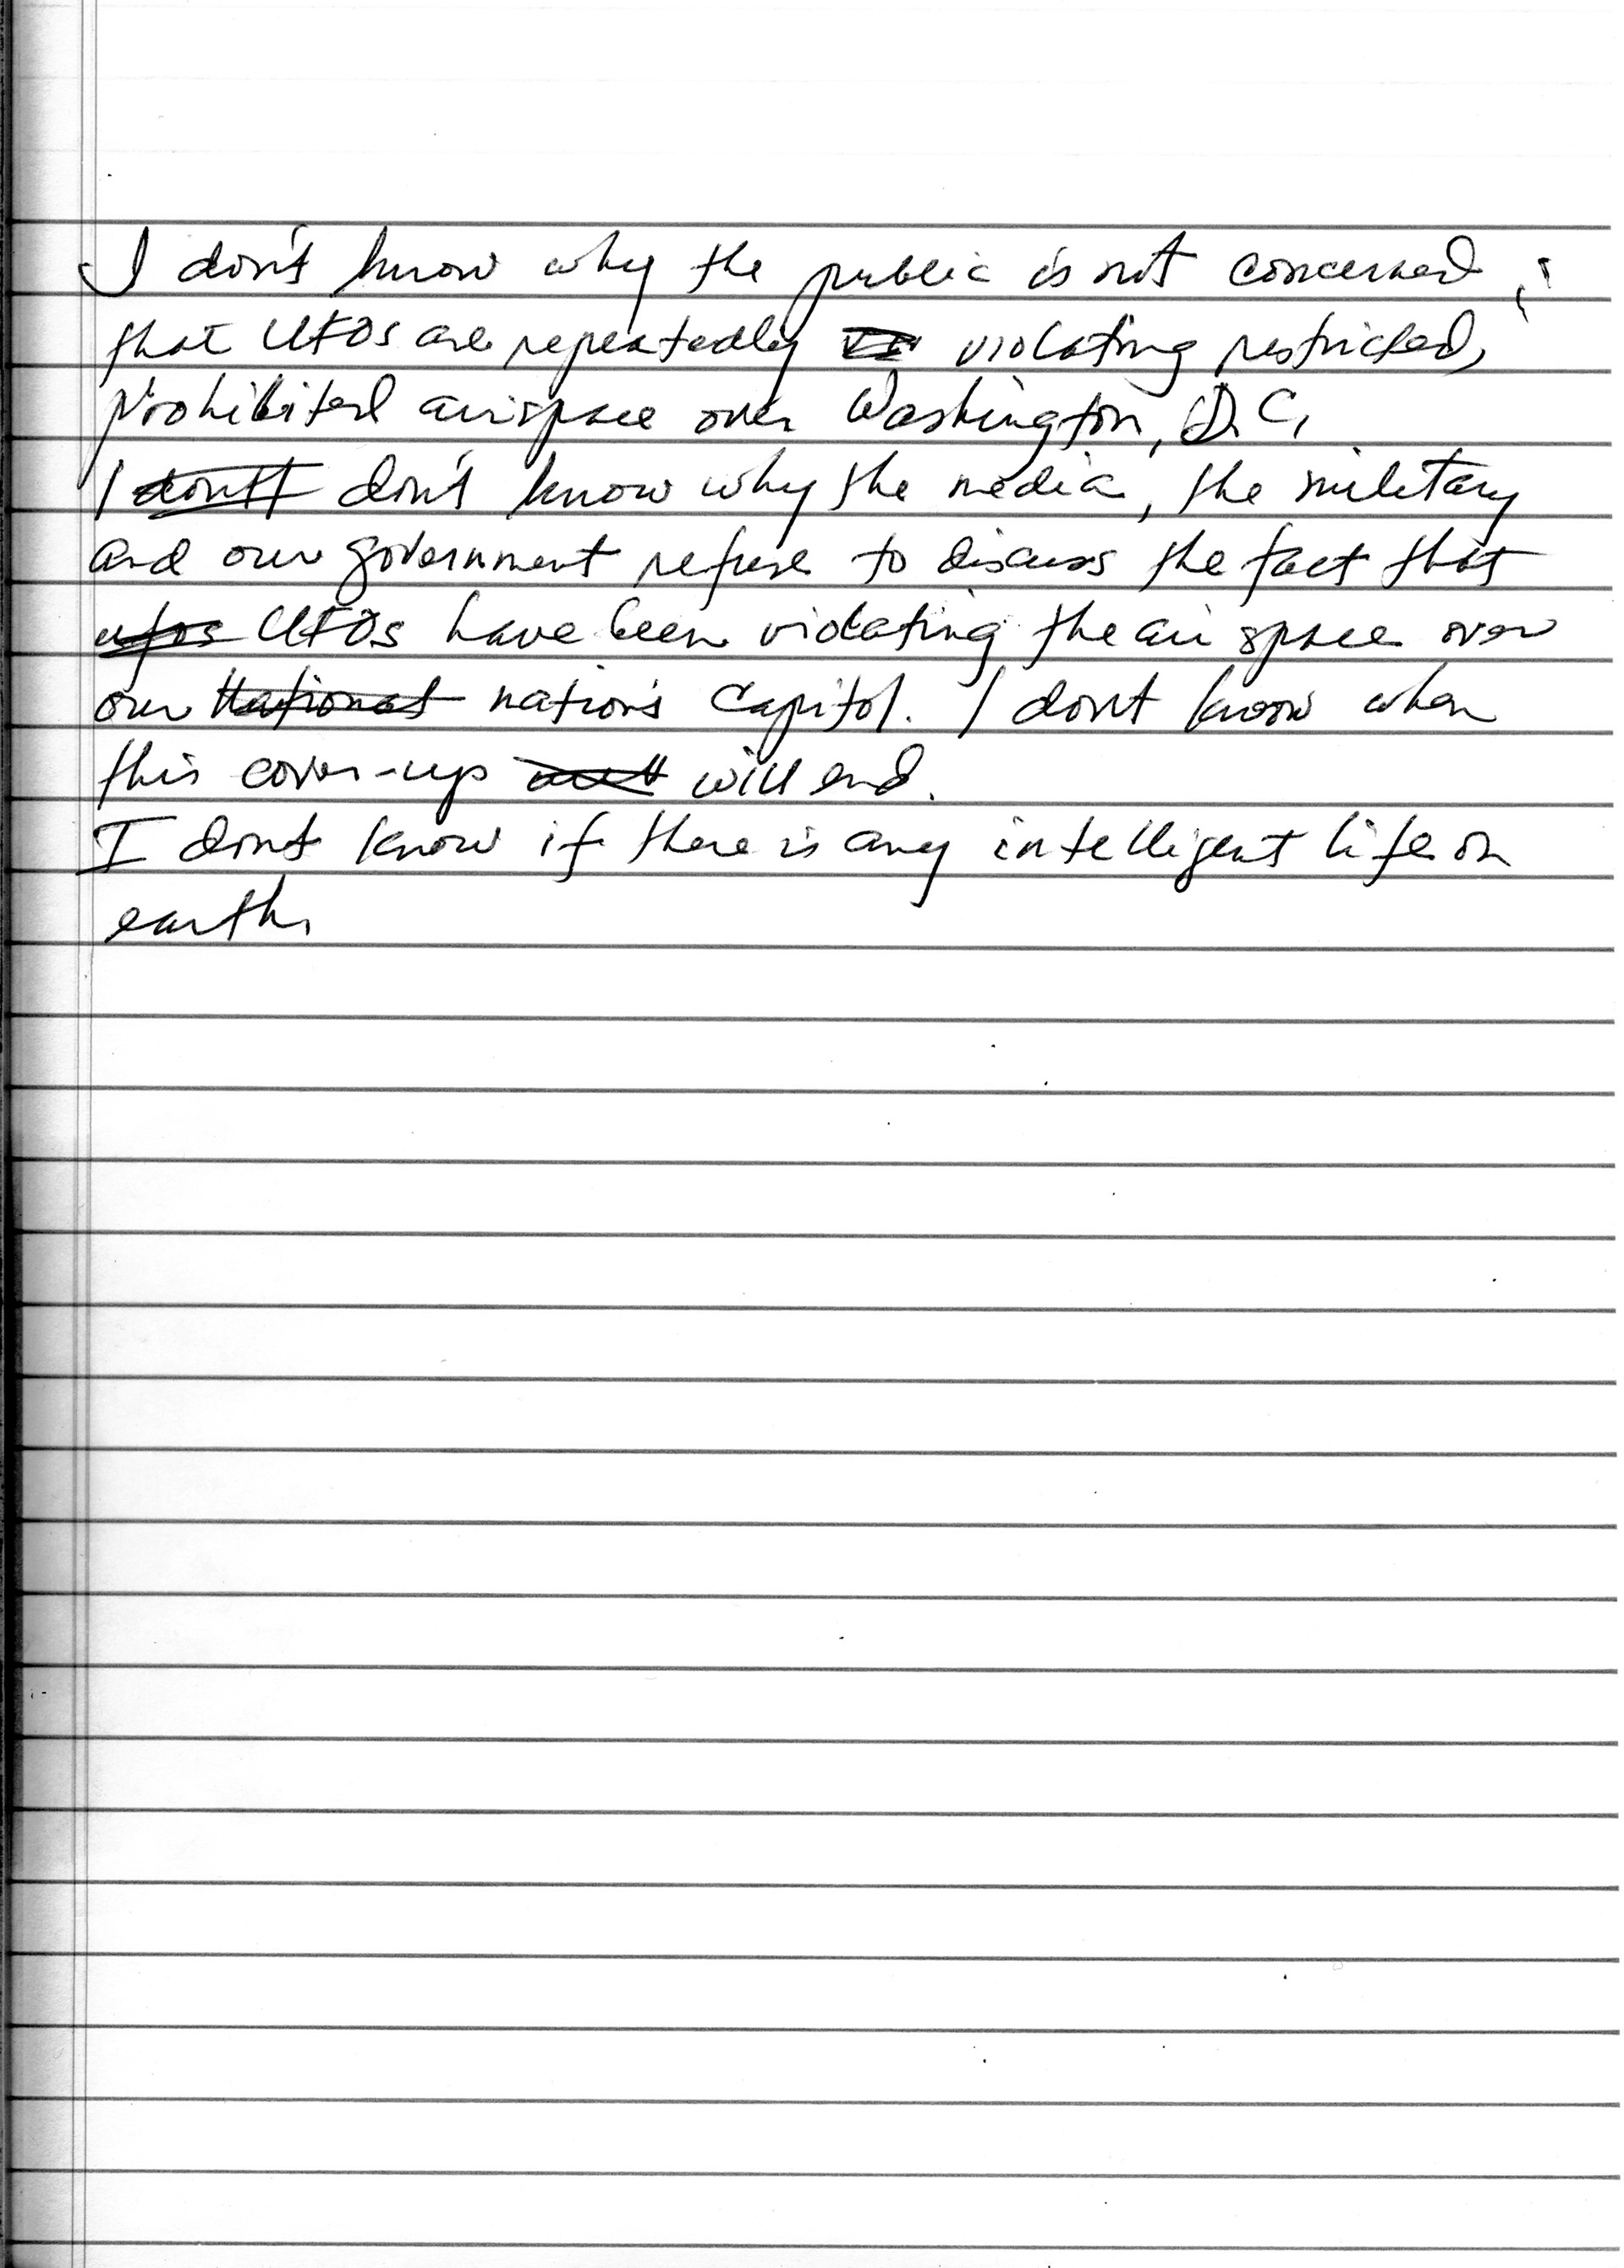 I don't know why the public is not concerned
that UFOs are repeatedly violating restricted,
prohibited airspace over Washington, D.C.
I don't don't know why the media, the military
and our government refuse to discuss the fact that
ufos UFOs have been violating the air space over
our National nation's Capitol. I don't know when
this cover-up will end.
I don't know if there is any intelligent life on
earth.